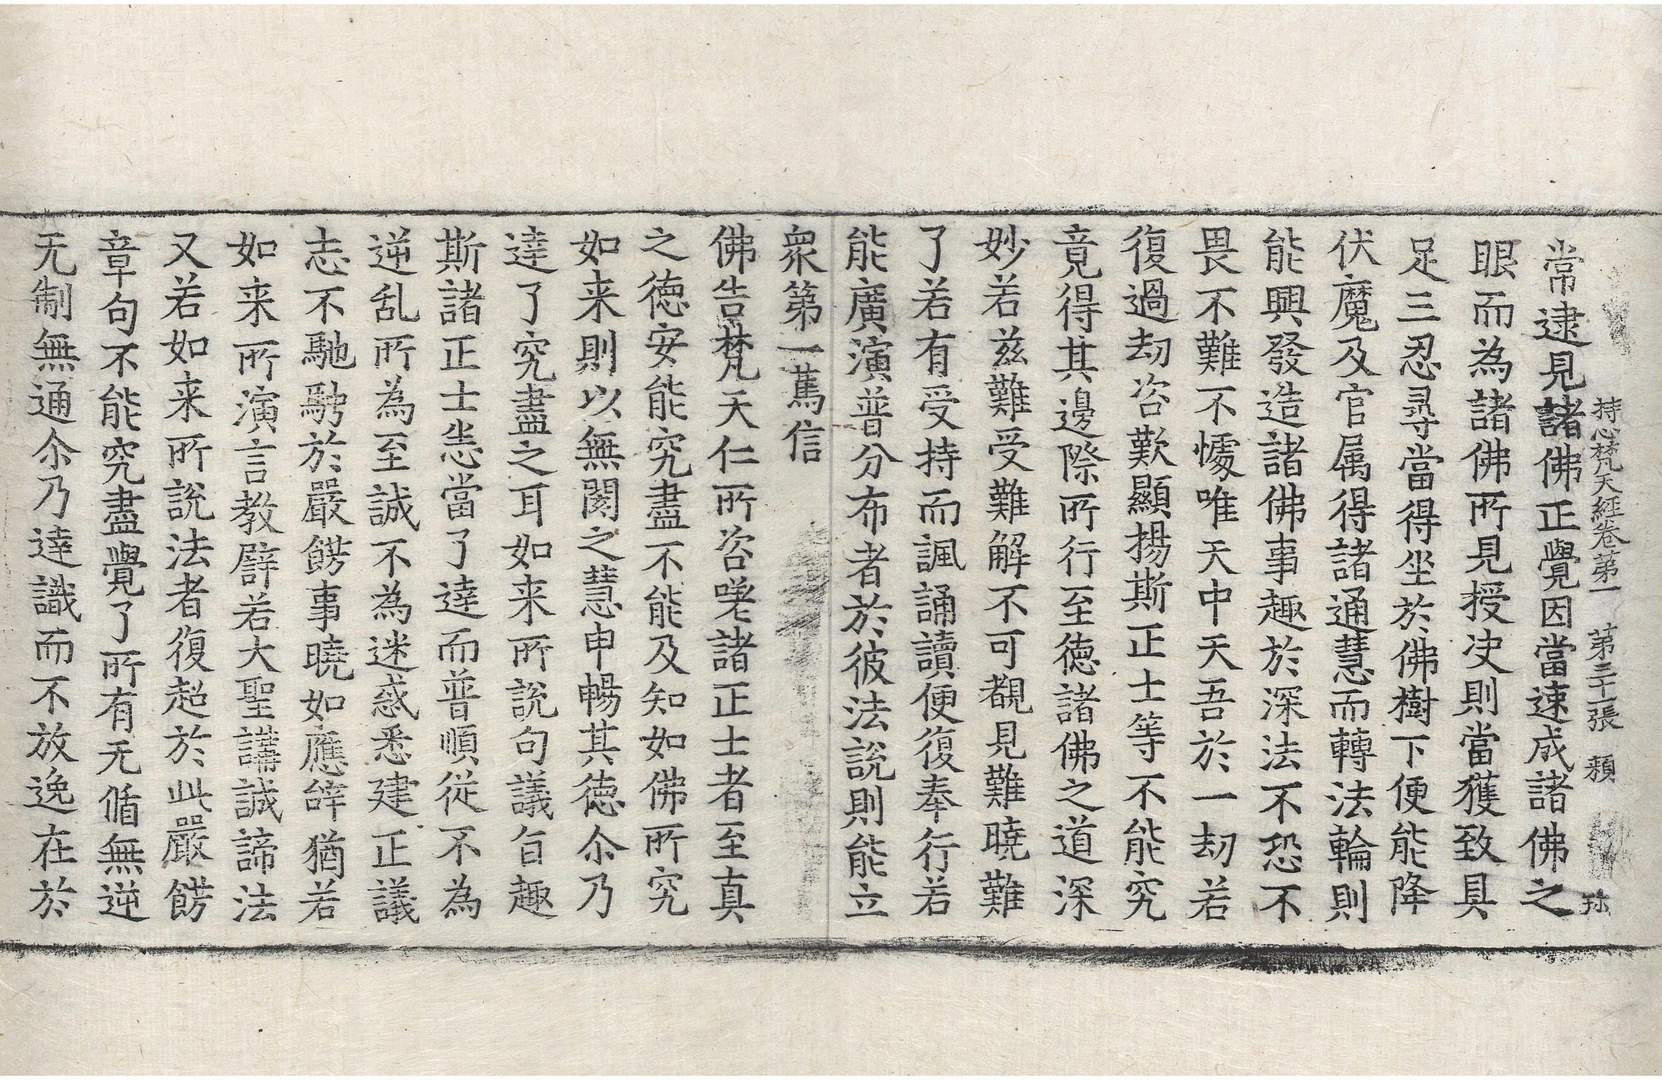 持心梵天經卷第一　第三十張　頛　玤
常逮見諸佛正覺因當速成諸佛之
眼而為諸佛所見授决則當獲致具
足三忍尋當得坐於佛樹下便能降
伏魔及官属得諸通慧而轉法輪則
能興發造諸佛事趣於深法不恐不
畏不難不懅唯天中天吾於一劫若
復過劫咨歎顯揚斯正士等不能究
竟得其邊際所行至德諸佛之道深
妙若兹難受難解不可覩見難曉難
了若有受持而諷誦讀便復奉行若
能廣演普分布者於彼法説則能立
衆第一篤信
佛告梵天仁所咨嗟諸正士者至真
之德安能究盡不能及知如佛所究
如来則以無閡之慧申暢其德尒乃
達了究盡之耳如来所説句議旨趣
斯諸正士悉當了達而普順従不為
逆乱所為至誠不為迷惑悉建正議
志不馳騁於嚴餝事曉如應辞猶若
如来所演言教辟若大聖講誠諦法
又若如来所説法者復超於此嚴餝
章句不能究盡覺了所有无循無逆
无制無通尒乃達識而不放逸在於